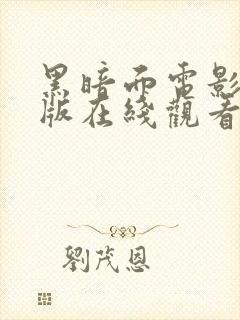 黑暗面電影
版在綫觀看
劉茂恩